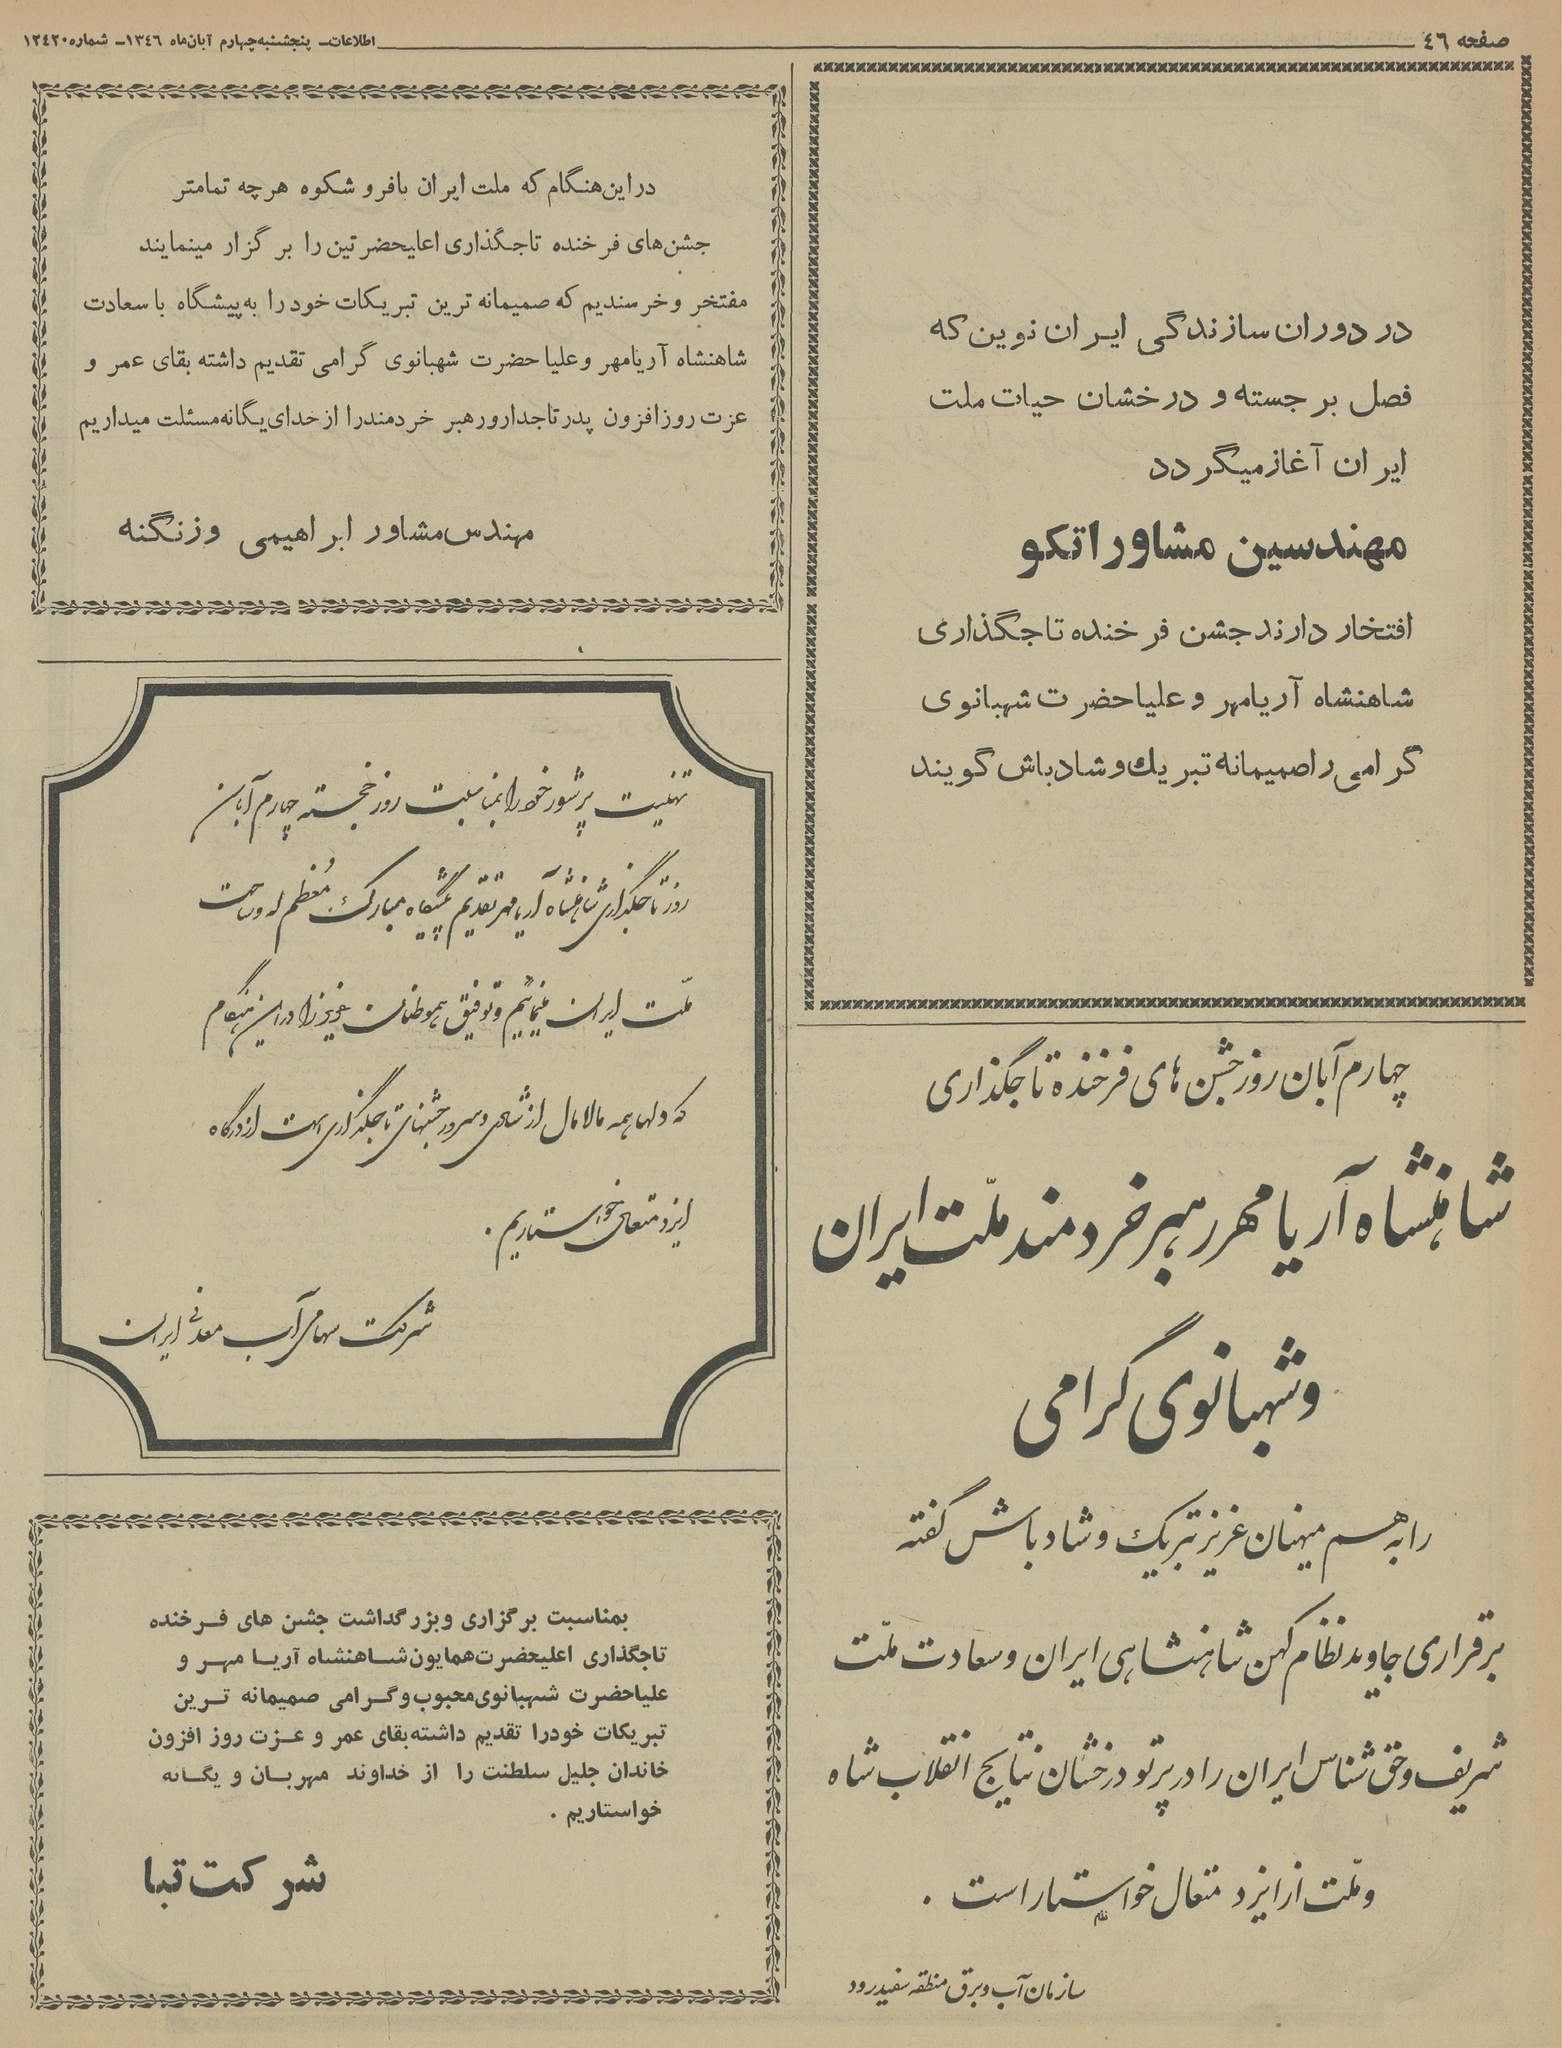 صفحه ٤٦
اطلاعات- پنجشنبه چهارم آبان‌ماه ١٣٤٦- شماره ١٢٤٢٠
در دوران سازندگی ایران نوین که
فصل برجسته و درخشان حیات ملت
ایران آغاز میگردد
مهندسین مشاور اتکو
افتخار دارند جشن فرخنده تاجگذاری
شاهنشاه آریامهر و علیاحضرت شهبانوی
گرامی را صمیمانه تبریك و شادباش گویند
چهارم آبان روز جشن های فرخنده تاجگذاری
شاهنشاه آریامهر رهبر خردمند ملّت ایران
و شهبانوی گرامی
را به هم میهنان عزیز تبریک و شادباش گفته
برقراری جاوید نظام کهن شاهنشاهی ایران و سعادت ملّت
شریف و حق شناس ایران را در پرتو درخشان نتایج انقلاب شاه
و ملّت از ایزد متعال خواستار است .
سازمان آب و برق منطقه سفیدرود
در این هنگام که ملت ایران با فر و شکوه هر چه تمامتر
جشن‌های فرخنده تاجگذاری اعلیحضرتین را برگزار مینمایند
مفتخر و خرسندیم که صمیمانه ترین تبریکات خود را به پیشگاه با سعادت
شاهنشاه آریامهر و علیاحضرت شهبانوی گرامی تقدیم داشته بقای عمر و
عزت روزافزون پدر تاجدار و رهبر خردمند را از خدای یگانه مسئلت میداریم
مهندس مشاور ابراهیمی و زنگنه
تهنیت پرشور خود را بمناسبت روز خجسته چهارم آبان
روز تاجگذاری شاهنشاه آریامهر تقدیم پیشگاه مبارک معظم له و ساحت
ملّت ایران مینمائیم و توفیق هموطنان عزیز را در این هنگام
که دلها همه مالامال از شادی و سرور جشنهای تاجگذاری است از درگاه
ایزد متعال خواستاریم .
شرکت سهامی آب معدنی ایران
بمناسبت برگزاری و بزرگداشت جشن های فرخنده
تاجگذاری اعلیحضرت همایون شاهنشاه آریا مهر و
علیاحضرت شهبانوی محبوب و گرامی صمیمانه ترین
تبریکات خودرا تقدیم داشته بقای عمر و عزت روز افزون
خاندان جلیل سلطنت را از خداوند مهربان و یگانه
خواستاریم .
شرکت تبا